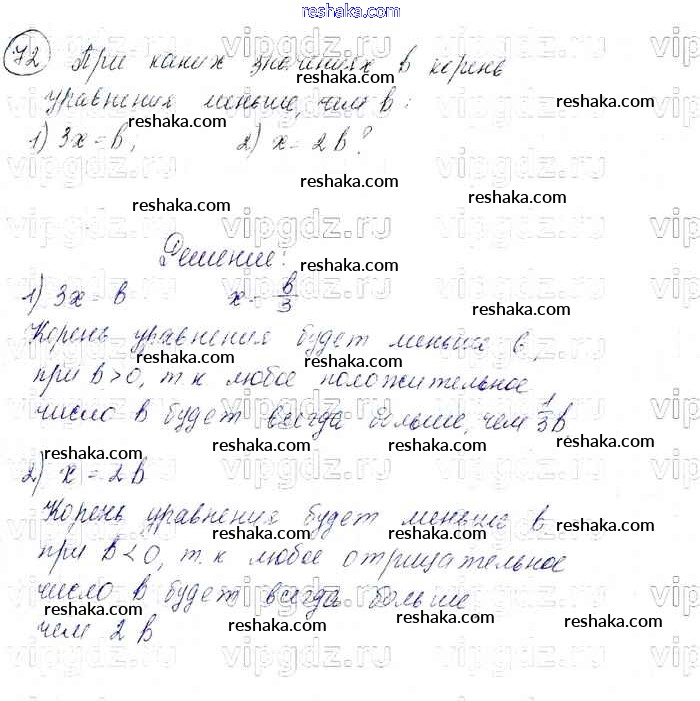 reshaka.com
72 При каких значениях b корень
уравнения меньше, чем b:
1) 3x = b, 2) x = 2b?
Решение:
1) 3x = b x = b/3
Корень уравнения будет меньше b,
при b>0, т.к любое положительное
число b будет всегда больше, чем 1/3 b
2) x = 2b
Корень уравнения будет меньше b
при b<0, т.к любое отрицательное
число b будет всегда больше
чем 2b
vipgdz.ru